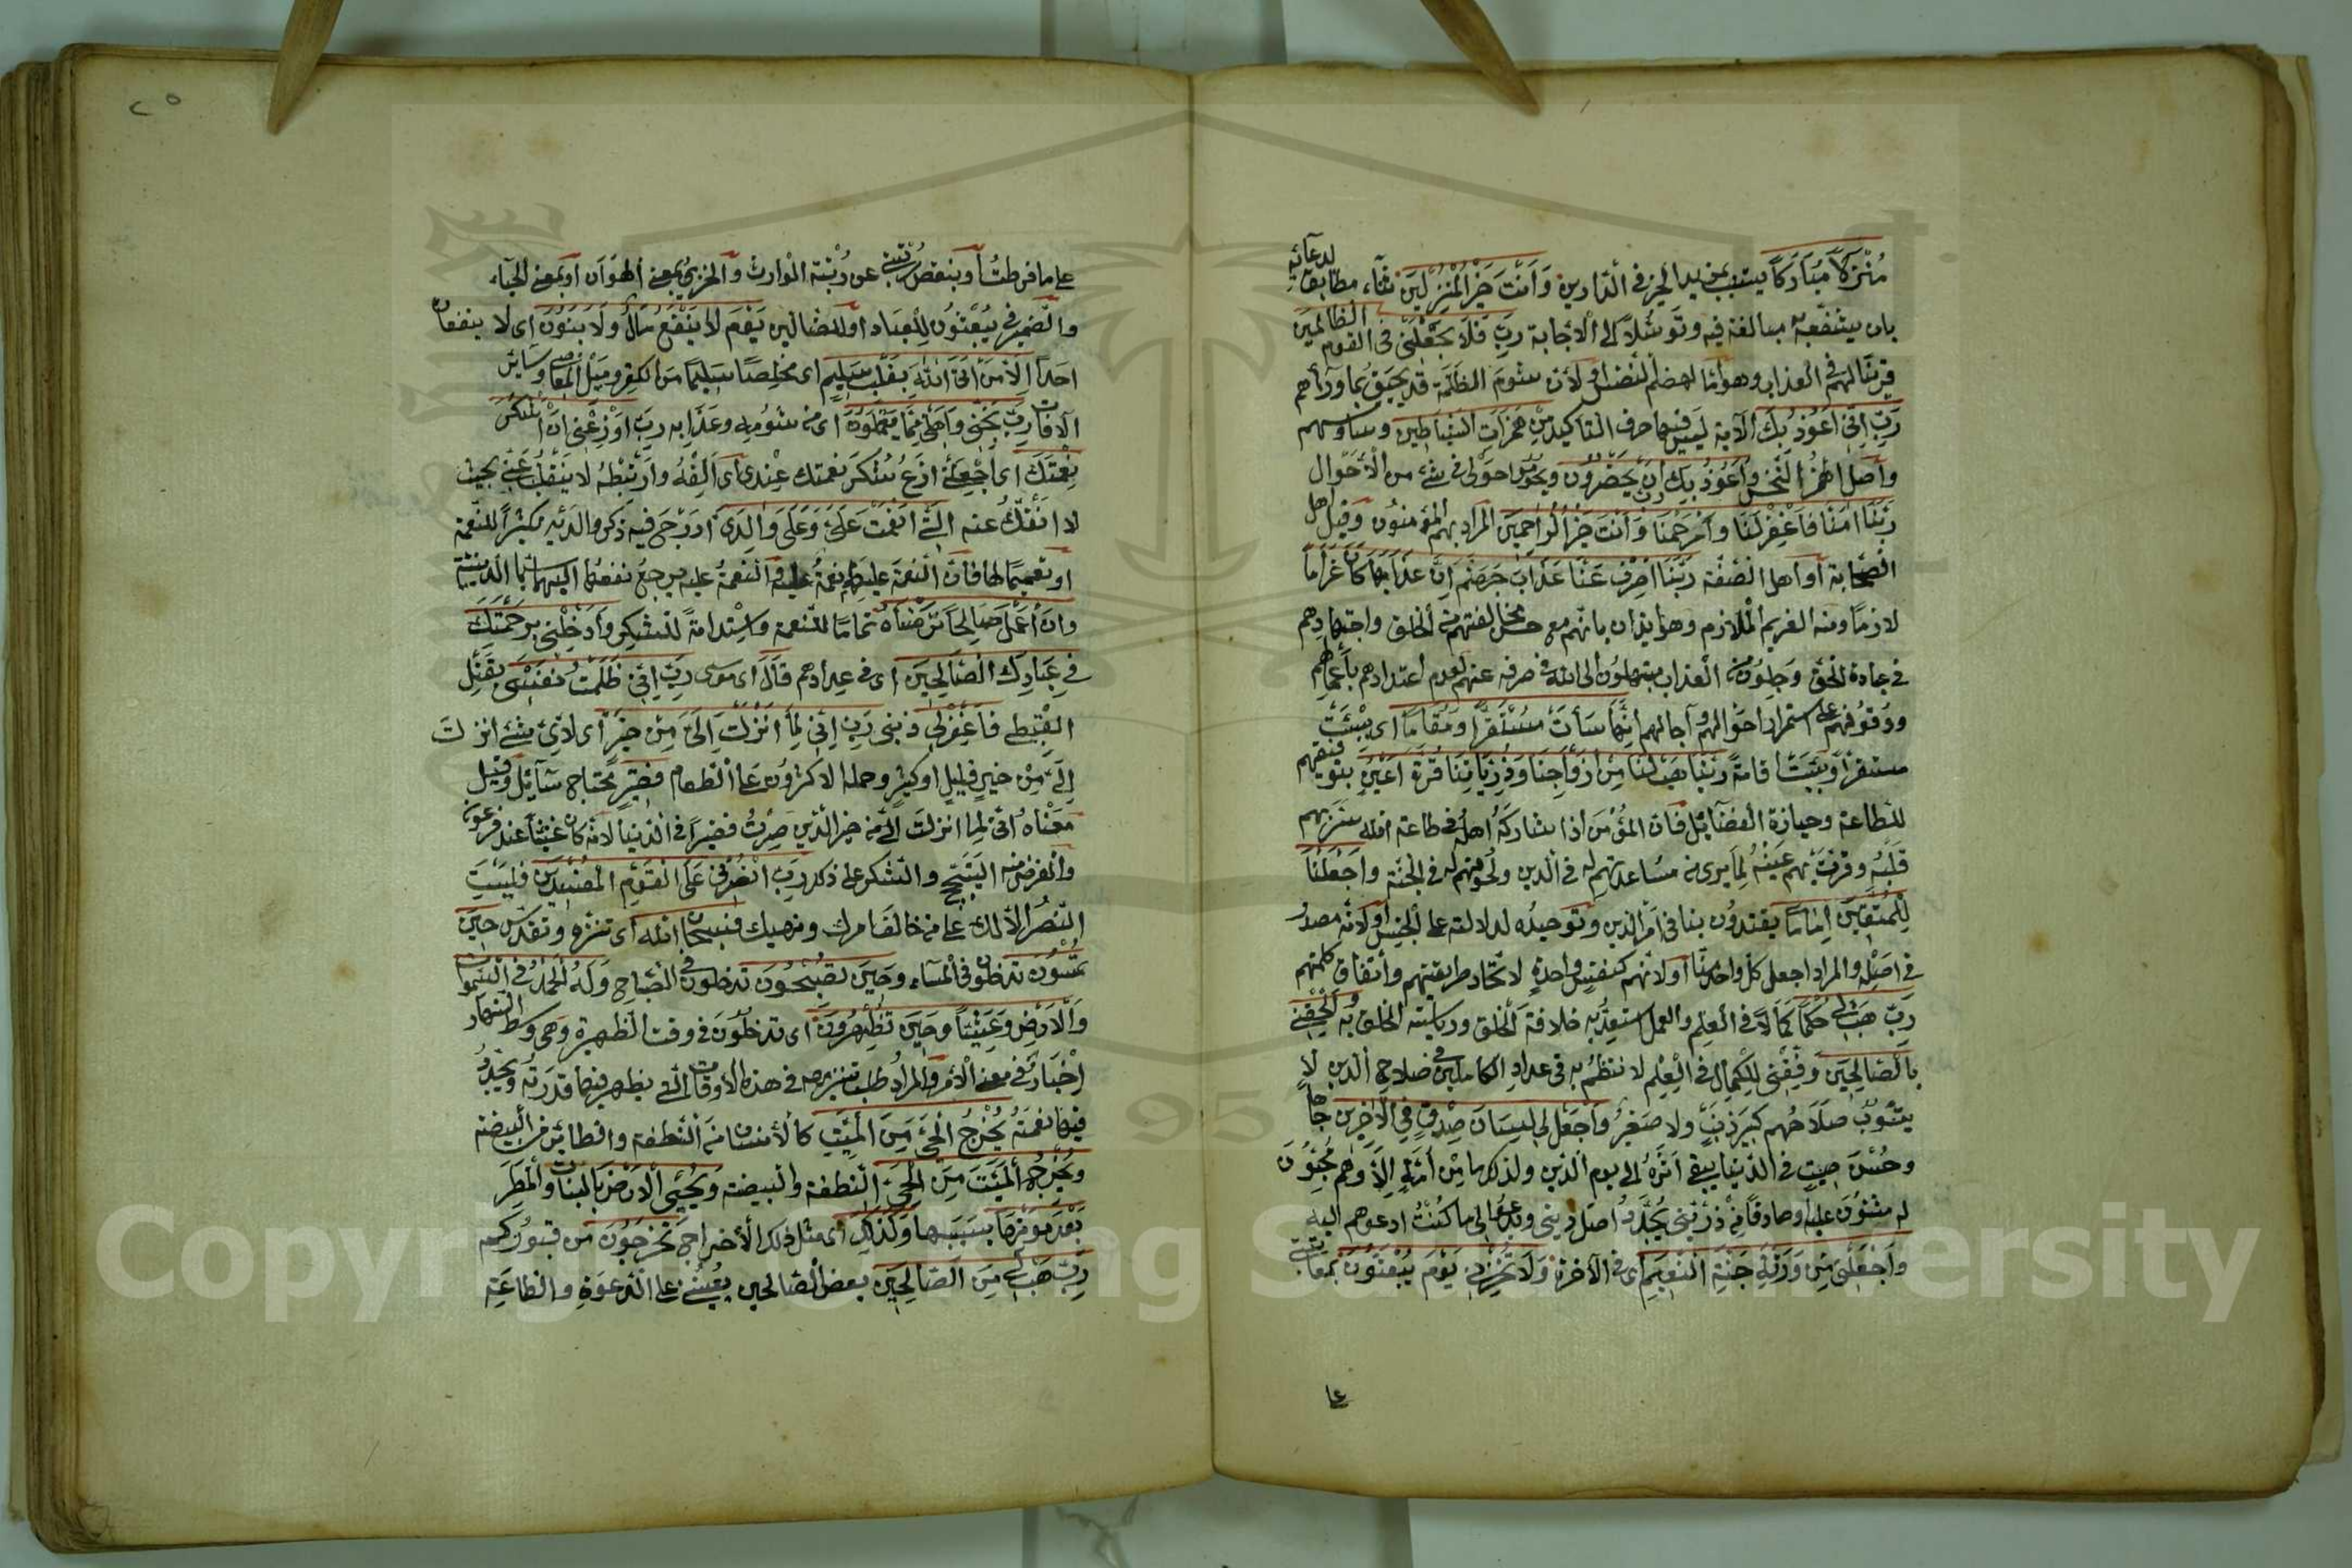 منزلا مباركا يتسبب لمزيد الخير في الدارين وأنت خير المنزلين ثناء مطابق لدعائه
بان يشفعه به مبالغة فيه وتوسلا الى الاجابة رب فلا تجعلني في القوم الظالمين
قرينا لهم في العذاب وهو اما لهضم النفس او لان شؤم الظلمة قد يحيق بما وراهم
رب اني اعوذ بك الآية ليس فيها حرف التأكيد من همزات الشياطين وساوسهم
واصل الهمز النخس واعوذ بك ان يحضرون ويحوموا حولى في شئ من الاحوال
ربنا امنا فاغفر لنا وارحمنا وانت خير الراحمين المراد بهم المؤمنون وقيل اهل
الصحابة او اهل الصفة ربنا اصرف عنا عذاب جهنم ان عذابها كان غراما
لازما ومنه الغريم لملازم وهو ايذان بانهم مع حسن مخالفتهم مع الخلق واجتهادهم
في عبادة الحق وجلون من العذاب مبتهلون الى الله في صرفه عنهم لعدم اعتدادهم باعمالهم
ووقوفهم على استمرار احوالهم وآجالهم انها ساءت مستقرا ومقاما اى بئست
مستقرا وبئست اقامة ربنا هب لنا من ازواجنا وذرياتنا قرة اعين بتوفيقهم
للطاعة وحيازة الفضائل فان المؤمن اذا شاركه اهله في طاعة الله سر بهم
قلبه وقرت بهم عينه لما يرى من مساعدتهم له في الدين ولحوقهم له في الجنة واجعلنا
للمتقين اماما يقتدون بنا في امر الدين وتوحيده لدلالته على الجنس او لانه مصدر
في اصله والمراد اجعل كل واحد منا او لانهم كنفس واحدة لاتحاد طريقتهم واتفاق كلمتهم
رب هب لي حكما كمالا في العلم والعمل استعد به خلافة الخلق ورياسة الخلق به والحقني
بالصالحين وفقني للكمال في العلم لانتظم به في عداد الكاملين في صلاح الدين لا
يشوب صلاحهم كبير ذنب ولا صغير واجعل لى لسان صدق في الآخرين جاها
وحسن صيت في الدنيا يبقى اثره الى يوم الدين ولذلك ما من امة الا وهم محبون
له مثنون عليه او صادقا من ذريتي يجدد اصل ديني ويدعو الى ما كنت ادعوهم اليه
واجعلنى من ورثة جنة النعيم اى في الآخرة ولا تخزني يوم يبعثون بمعاتبتي
على
٢٥
على ما فرطت او بنقص رتبتي عن رتبة الوارث والخزي بمعنى الهوان او بمعنى الحياء
والضمير في يبعثون للعباد او للضالين يوم لا ينفع مال ولا بنون اى لا ينفعان
احدا الا من اتى الله بقلب سليم اى مخلصا سليما من الكفر وميل المعاصى وسائر
الآفات رب نجني واهلى مما يعملون اى من شؤمه وعذابه رب اوزعني ان اشكر
نعمتك اى اجعلني ازع شكر نعمتك عندى اى الفه وارتبطه لا ينقلب عني بحيث
لا انفك عنه التي انعمت علي وعلى والدى ادرج فيه ذكر والديه تكثيرا للنعمة
او تعميما لها فان النعمة عليهما نعمة عليه والنعمة عليه يرجع نفعها اليهما سيما الدينية
وان اعمل صالحا ترضاه تماما للنعمة واستدامة للشكر وادخلني برحمتك
في عبادك الصالحين اى في عدادهم قال اى موسى رب اني ظلمت نفسى بقتل
القبطي فاغفر لى ذنبى رب اني لما انزلت الى من خير اى لاى شئ انزلت
الى من خير قليل او كثير وحمله الاكثرون على الطعام فقير محتاج سائل وقيل
معناه انى لما انزلت الى من خير الدين صرت فقيرا في الدنيا لانه كان غنيا عند فرعون
والغرض منه التبجح والشكر على ذلك رب انصرني على القوم المفسدين فليست
النصر الا لك على من خالف امرك ونهيك فسبحان الله اى تنزه وتقدس حين
تمسون تدخلون في المساء وحين تصبحون تدخلون في الصباح وله الحمد في السموات
والارض وعشيا وحين تظهرون اى تدخلون في وقت الظهيرة وهى وسط النهار
اخبار في معنى الامر والمراد طلب تنزيهه في هذه الاوقات التي يظهر فيها قدرته وتجدد
فيها نعمته يخرج الحى من الميت كالانسان من النطفة والطائر من البيضة
ويخرج الميت من الحى النطفة والبيضة ويحيى الارض بالنبات والمطر
بعد موتها بسببها وكذلك اى مثل ذلك الاخراج تخرجون من قبوركم
رب هب لى من الصالحين بعض الصالحين يعينني على الدعوة والطاعة